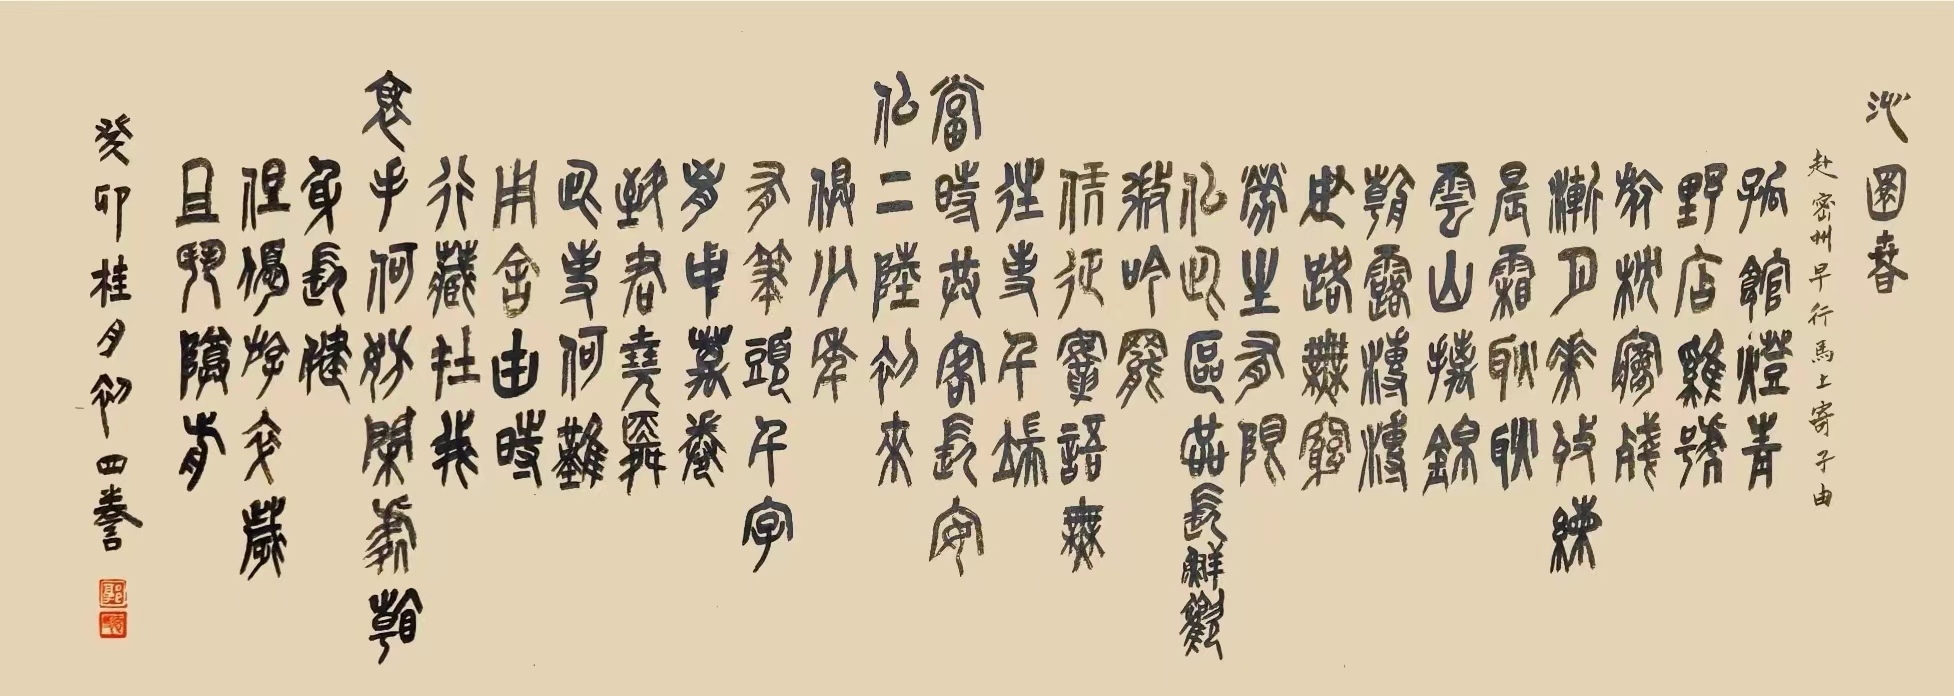 沁園春
赴密州早行馬上寄子由
孤館燈青
野店雞號
旅枕夢殘
漸月華收練
晨霜耿耿
雲山摛錦
朝露漙漙
世路無窮
勞生有限
似此區區長鮮歡
微吟罷
征鞍語無
往事千端
當時共客長安
似二陸初來
俱少年
有筆頭千字
胸中萬卷
致君堯舜
此事何難
用舍由時
行藏在我
袖手何妨閑處看
身長健
但優游卒歲
且鬥尊前
癸卯桂月初四誊